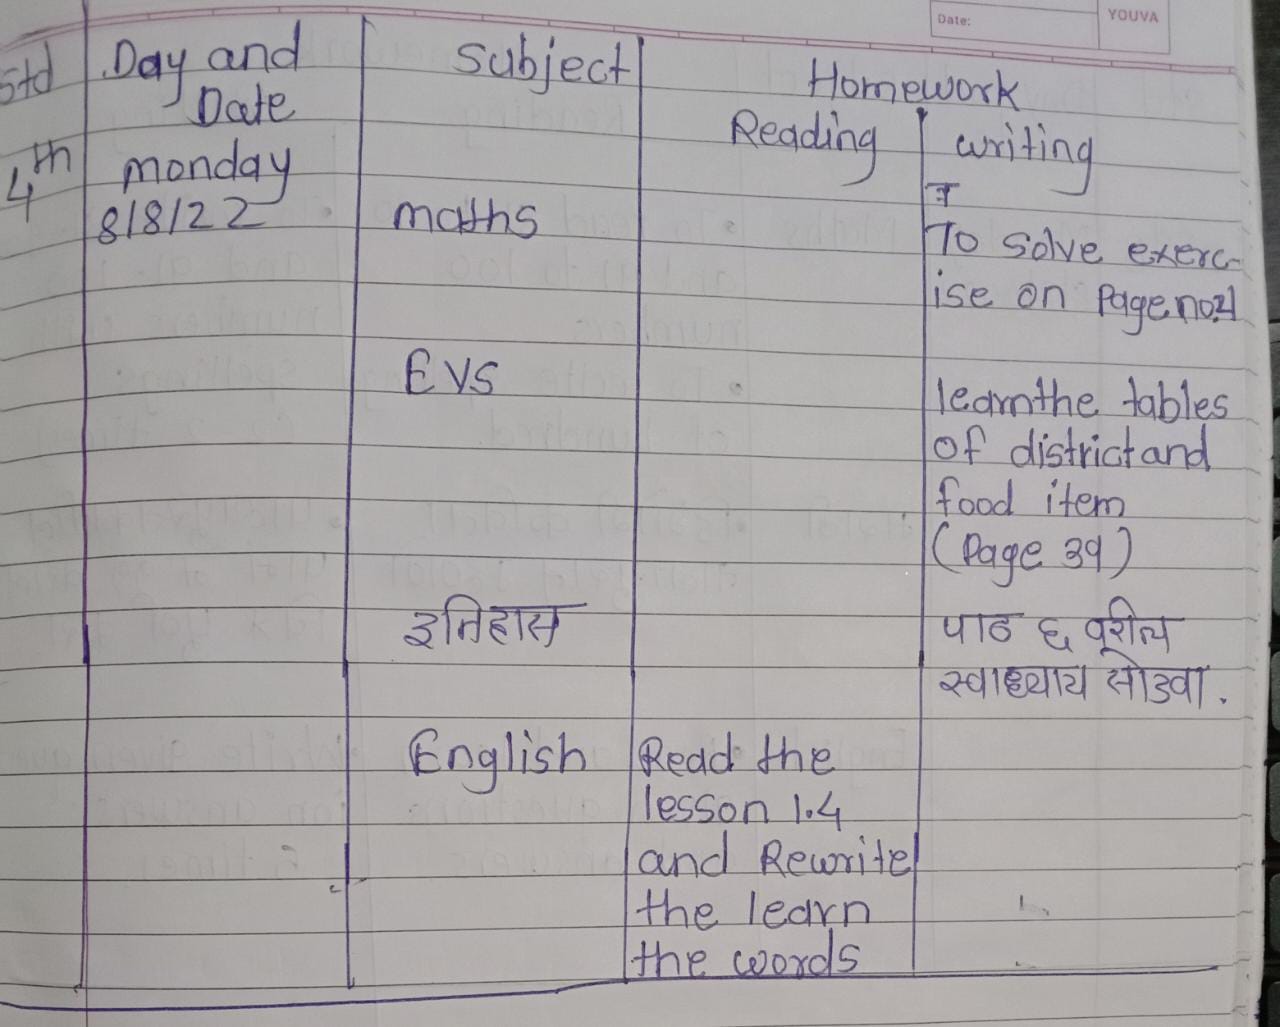 Date:
YOUVA
Std
Day and
Date
Subject
Homework
Reading
writing
4th
monday
8/8/22
maths
To solve exerc-
ise on Page no.
EVS
learn the tables
of district and
food item
(Page 39)
इतिहास
पाठ ६ वरील
स्वाध्याय सोडवा.
English
Read the
lesson 1.4
and Rewrite
the learn
the words